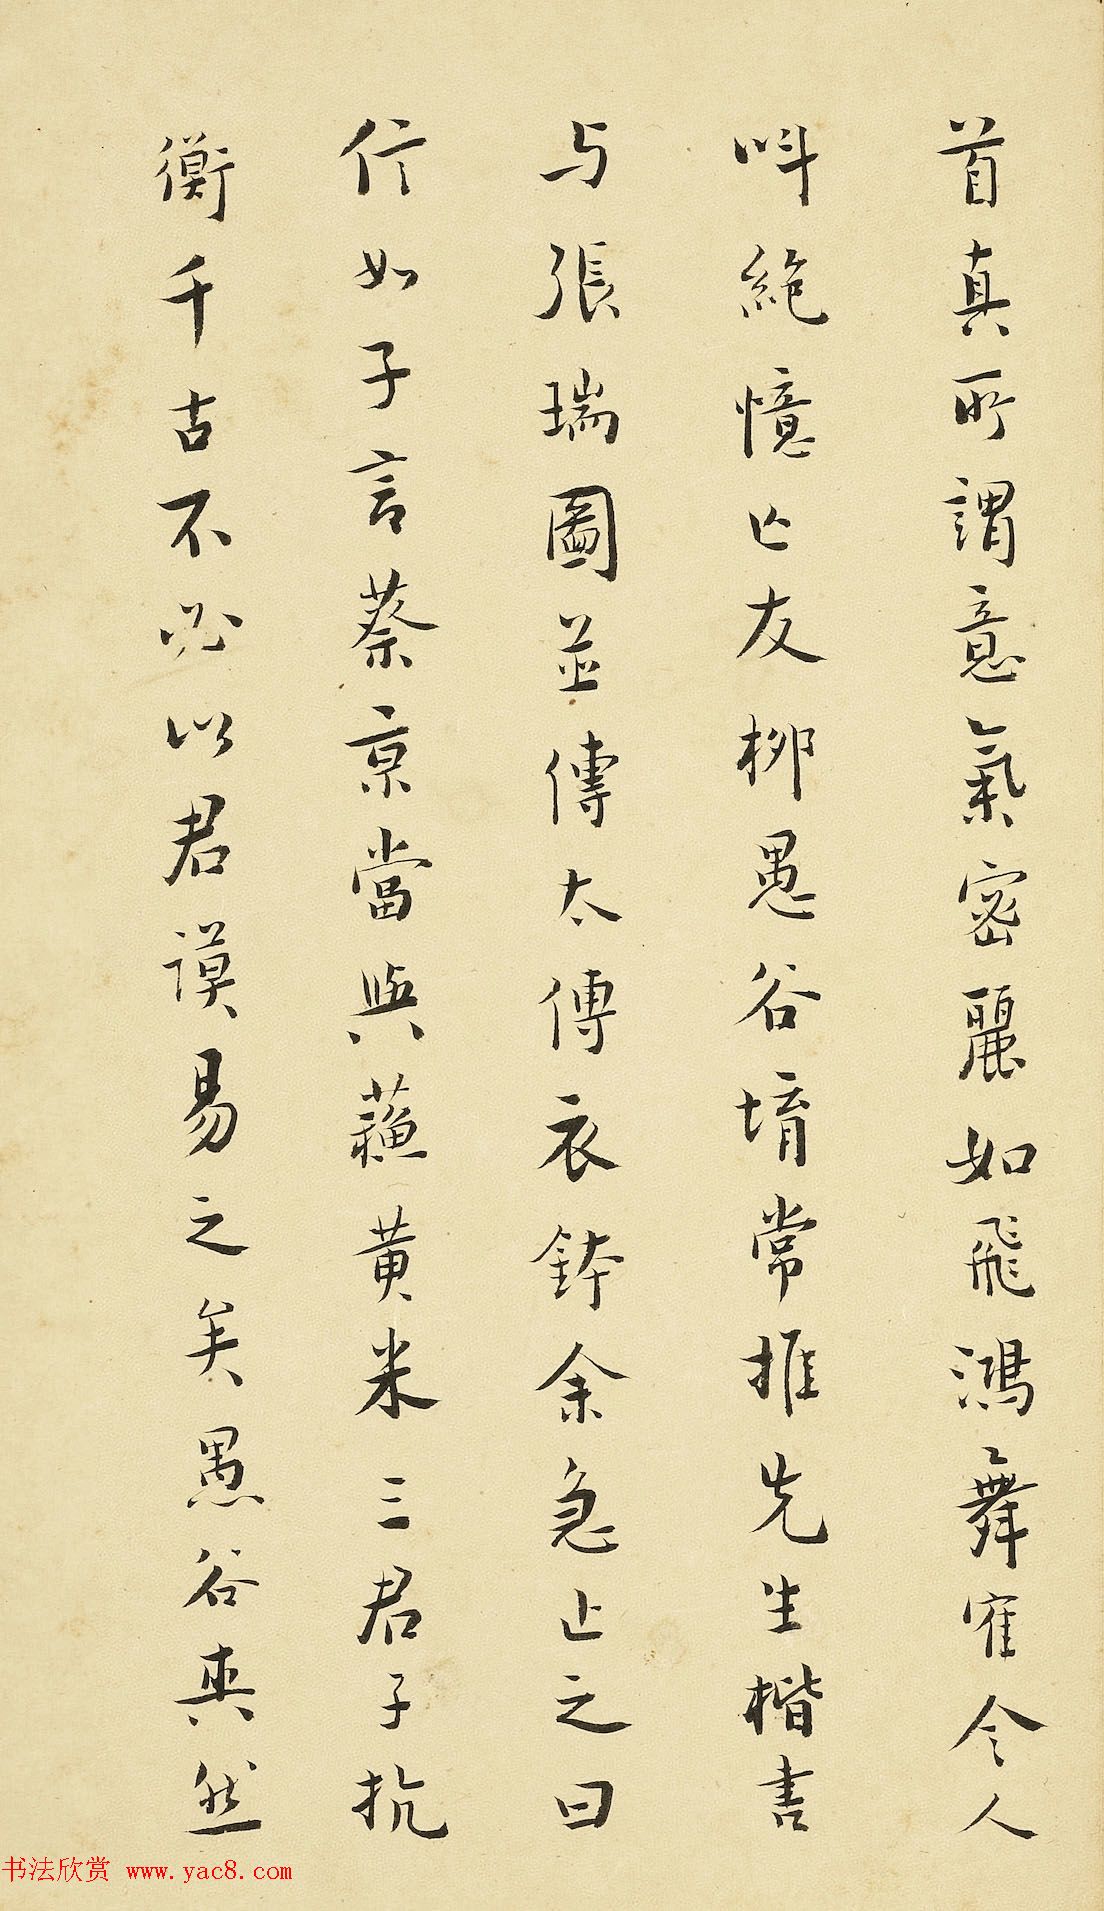 首真所謂意氣密麗如飛鴻舞寉令人
叫絕憶亡友柳愚谷堉常推先生楷書
与張瑞圖並傳太傅衣鉢余急止之曰
信如子言蔡京當與蘓黃米三君子抗
衡千古不必以君謨易之矣愚谷爽然
书法欣赏 www.yac8.com